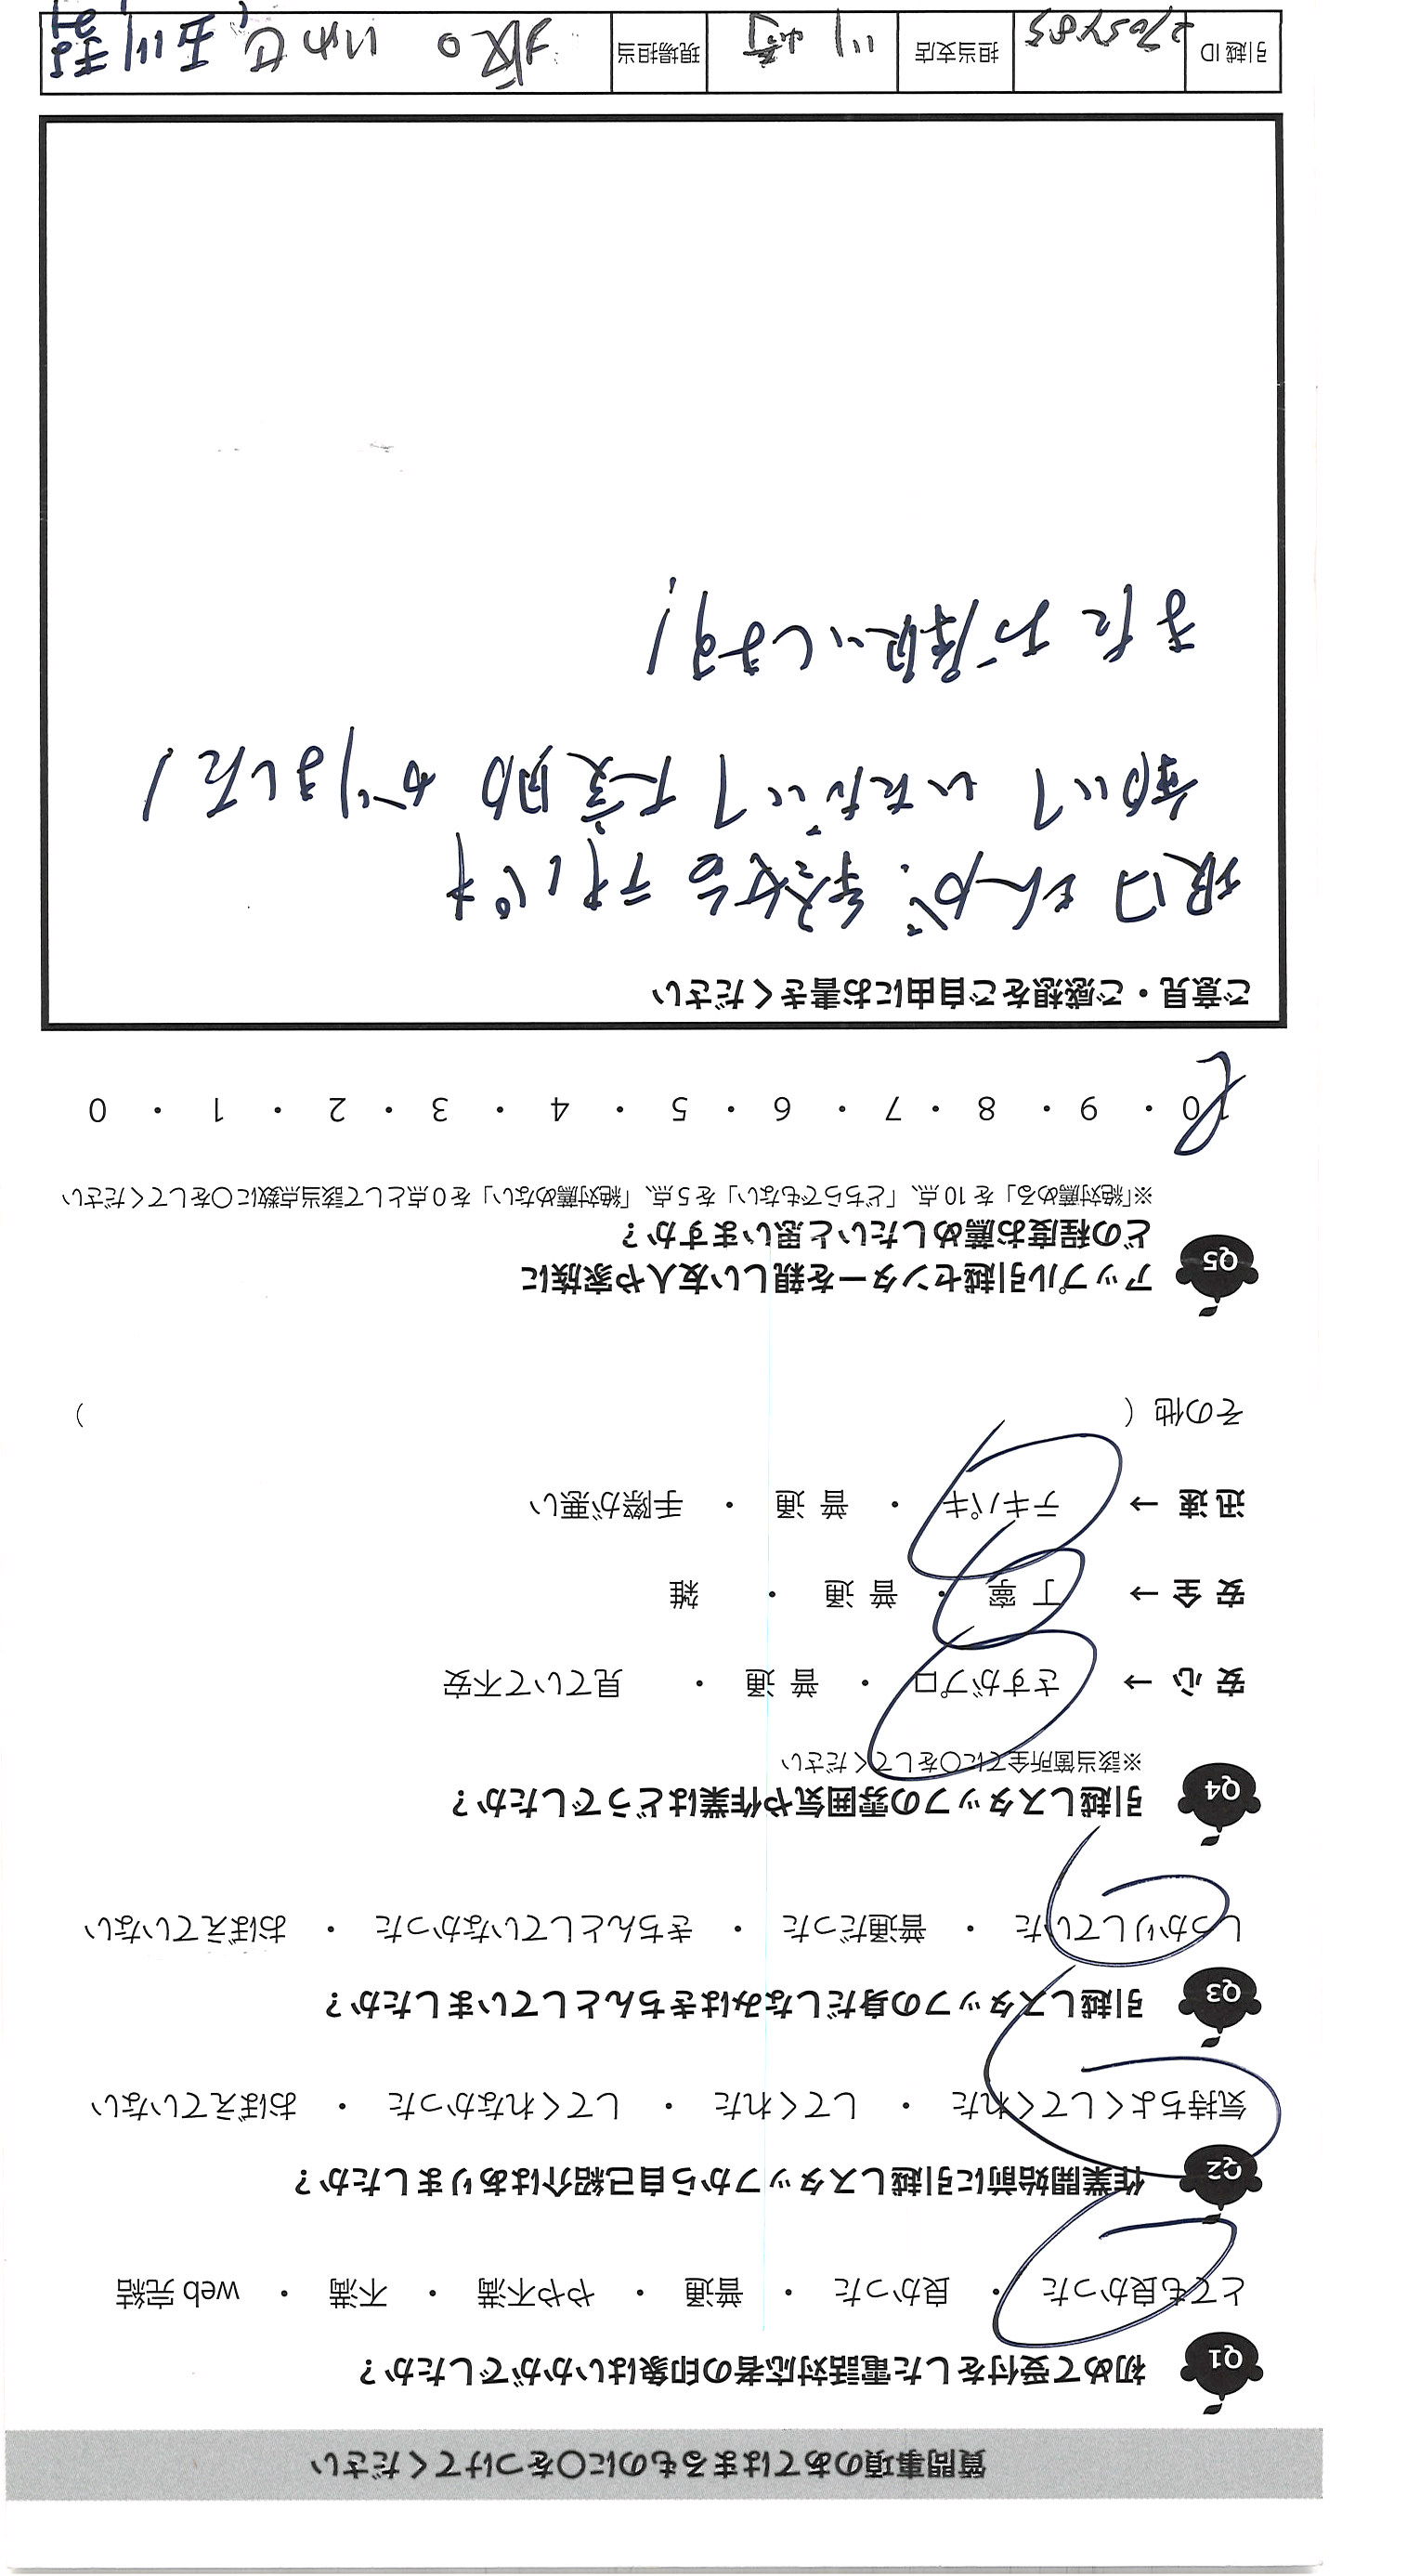 質問事項のあてはまるものに〇をつけてください
Q1 初めて受付をした電話対応者の印象はいかがでしたか？
とても良かった ・ 良かった ・ 普通 ・ やや不満 ・ 不満 ・ web 完結
Q2 作業開始前に引越しスタッフから自己紹介はありましたか？
気持ちよくしてくれた ・ してくれた ・ してくれなかった ・ おぼえていない
Q3 引越しスタッフの身だしなみはきちんとしていましたか？
しっかりしていた ・ 普通だった ・ きちんとしていなかった ・ おぼえていない
Q4 引越しスタッフの雰囲気や作業はどうでしたか？
※該当箇所全てに〇をしてください
安 心 → さすがプロ ・ 普 通 ・ 見ていて不安
安 全 → 丁 寧 ・ 普 通 ・ 雑
迅 速 → テキパキ ・ 普 通 ・ 手際が悪い
その他（ ）
Q5 アップル引越センターを親しい友人や家族に
どの程度お薦めしたいと思いますか？
※「絶対薦める」を 10 点、「どちらでもない」を 5 点、「絶対薦めない」を 0 点として該当点数に〇をしてください
10 ・ 9 ・ 8 ・ 7 ・ 6 ・ 5 ・ 4 ・ 3 ・ 2 ・ 1 ・ 0
ご意見・ご感想をご自由にお書きください
坂口さんが、気せる テレビを
動いて いただいて 大変助かりました！
またお願いします！
引越 ID 担当支店 川崎 現場担当